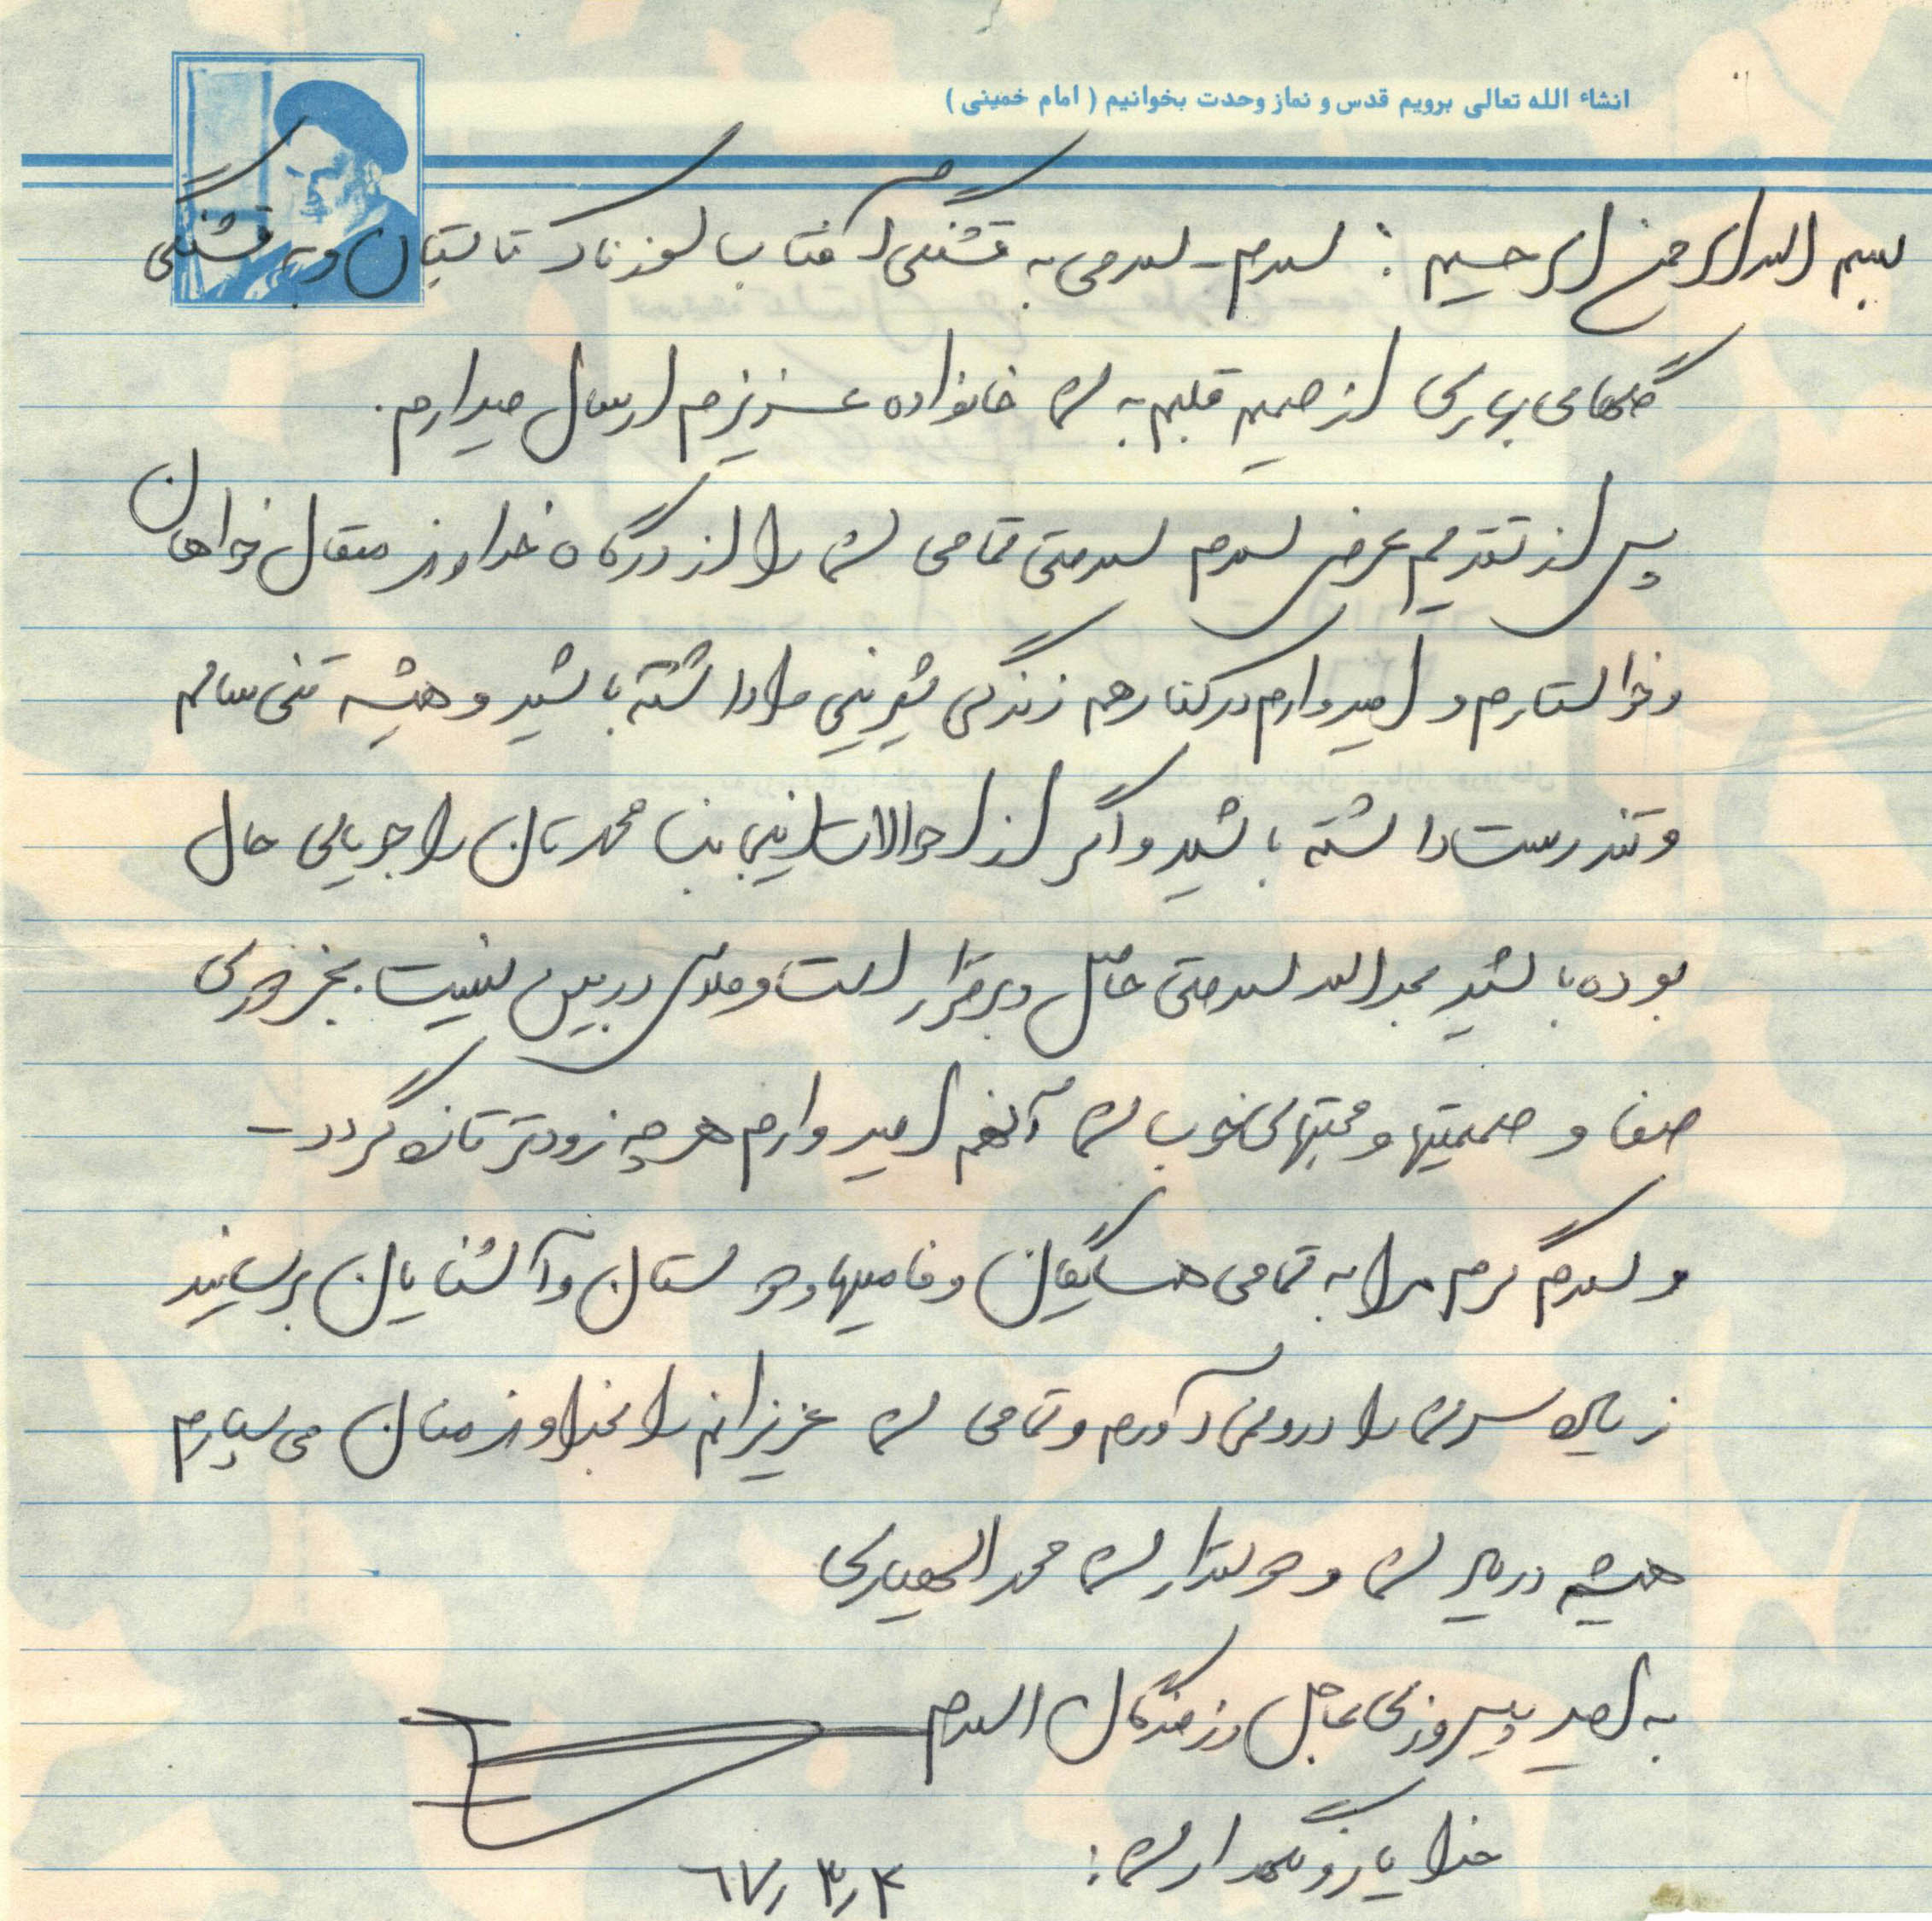 انشاء الله تعالی برویم قدس و نماز وحدت بخوانیم ( امام خمینی )
بسم الله الرحمن الرحیم : سلام - سلامی به قشنگی آفتاب سوزناک تابستان و به قشنگی
گلهای بهاری از صمیم قلبم به شما خانواده عزیزم ارسال میدارم .
پس از تقدیم عرض سلام سلامتی تمامی شما را از درگاه خداوند متعال خواهان
و خواستارم و امیدوارم در کنار هم زندگی شیرینی را داشته باشید و همیشه تنی سالم
و تندرست داشته باشید و اگر از احوالات اینجانب محمدتان را جویای حال
بوده باشید بحمدالله سلامتی حاصل و برقرار است و ملالی در بین نیست . بجز دوری
صفا و صمیمیتها و محبتهای خوب شما آنهم امیدوارم هر چه زودتر تازه گردد -
و سلام گرم مرا به تمامی همسایگان و فامیلها و دوستان و آشنایان برسانید
زیاد سر شما را درد نمی آورم و تمامی شما عزیزانم را بخداوند منان می سپارم
همیشه در یاد شما و دوستدار شما محمد
به امید پیروزی عاجل رزمندگان اسلام
خدا یار و نگهدار شما :
۶۷٫ ۳٫ ۴